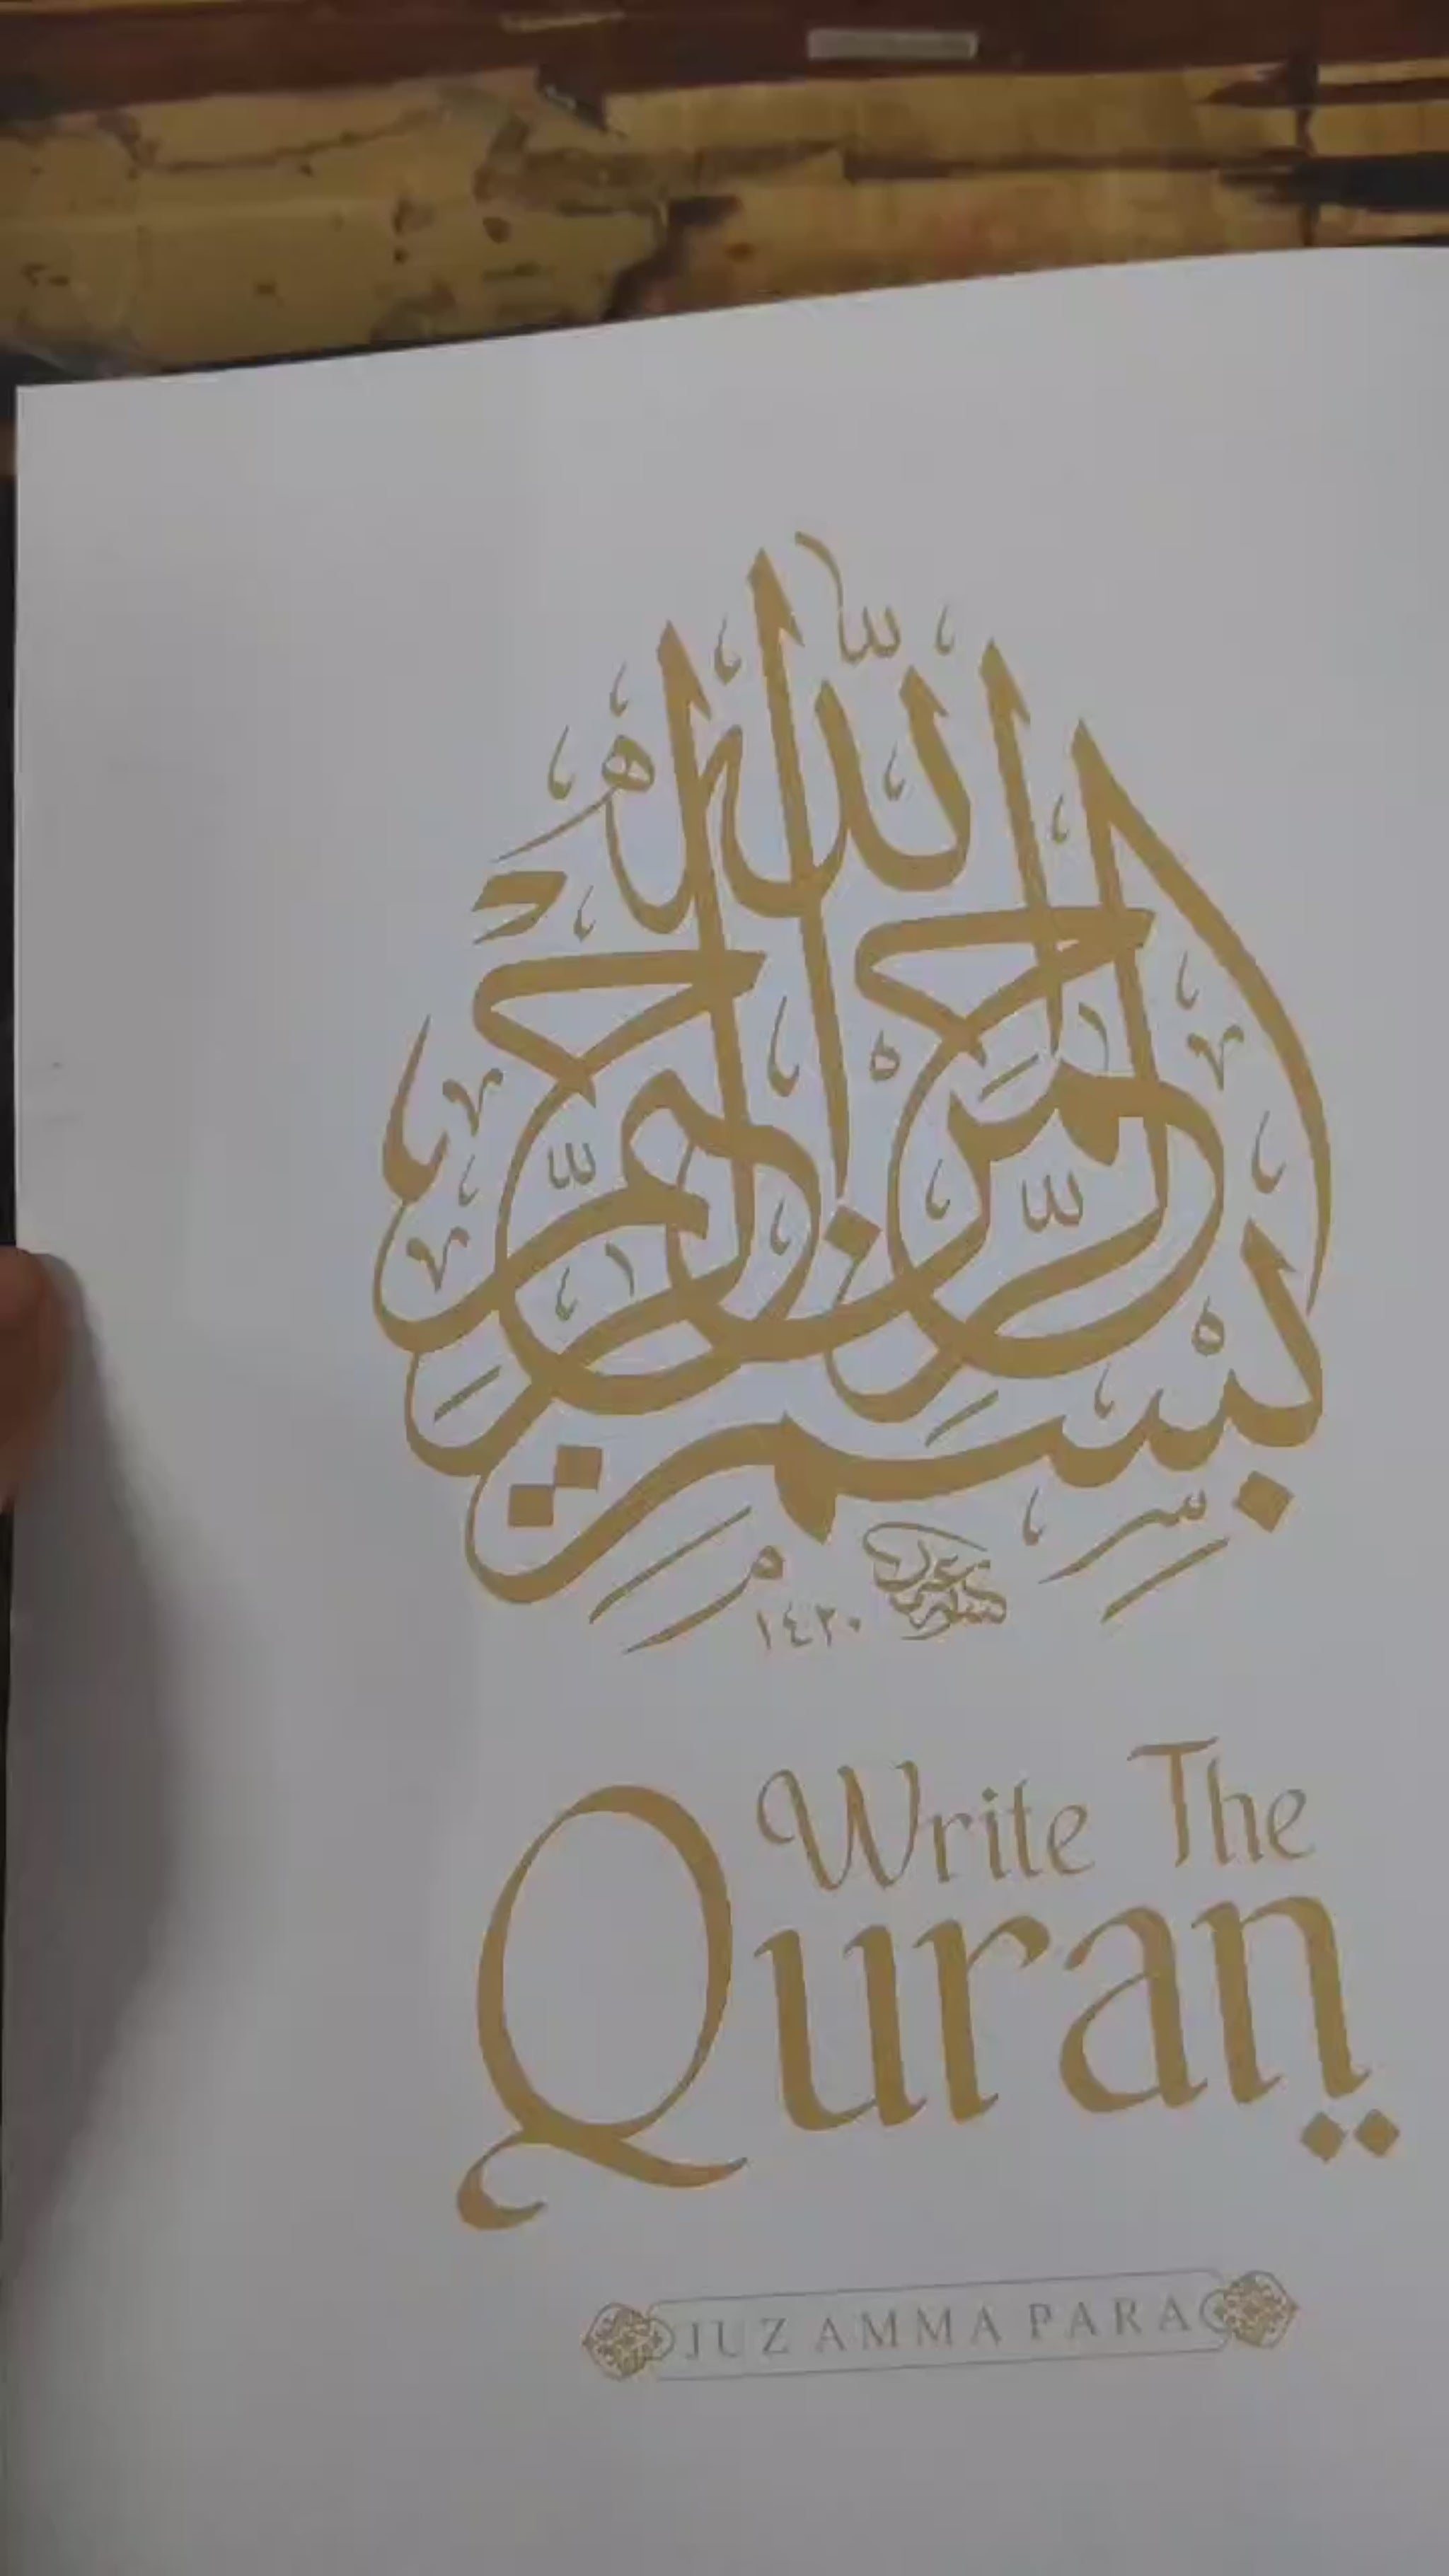 بِسْمِ اللهِ الرَّحْمٰنِ الرَّحِيْمِ
١٤٢٠
Write The
Quran
JUZ AMMA PARA